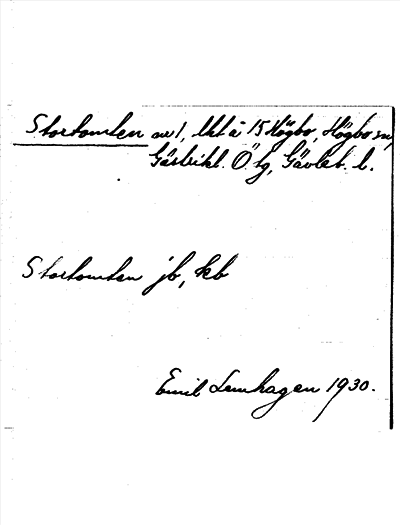 Stortomten av 1, lht à 15 Högbo, Högbo sn,
Gästrikl. Ö tg, Gävleb. l.
Stortomten jb, kb
Emil Lemhagen 1930.